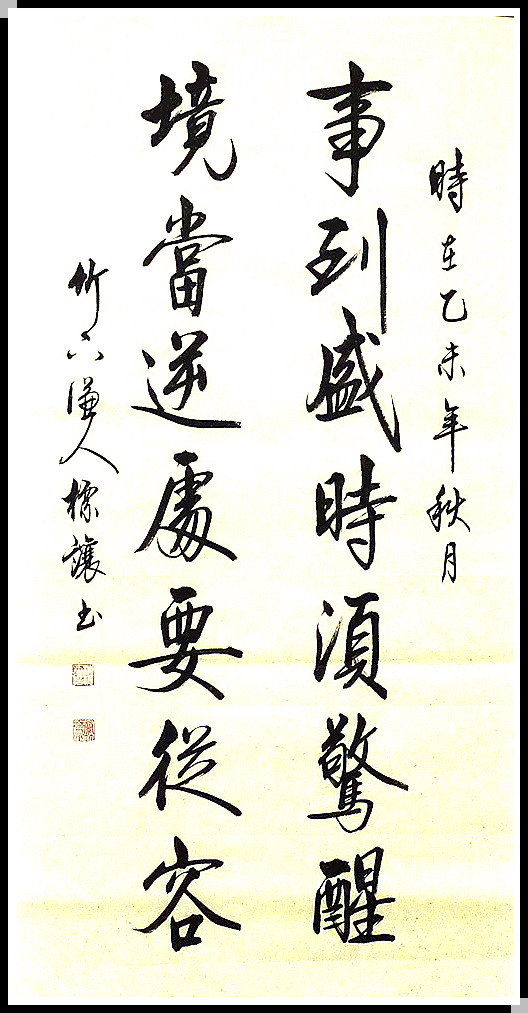 時在乙未年秋月
事到盛時須驚醒
境當逆處要從容
竹下謙人標讓书